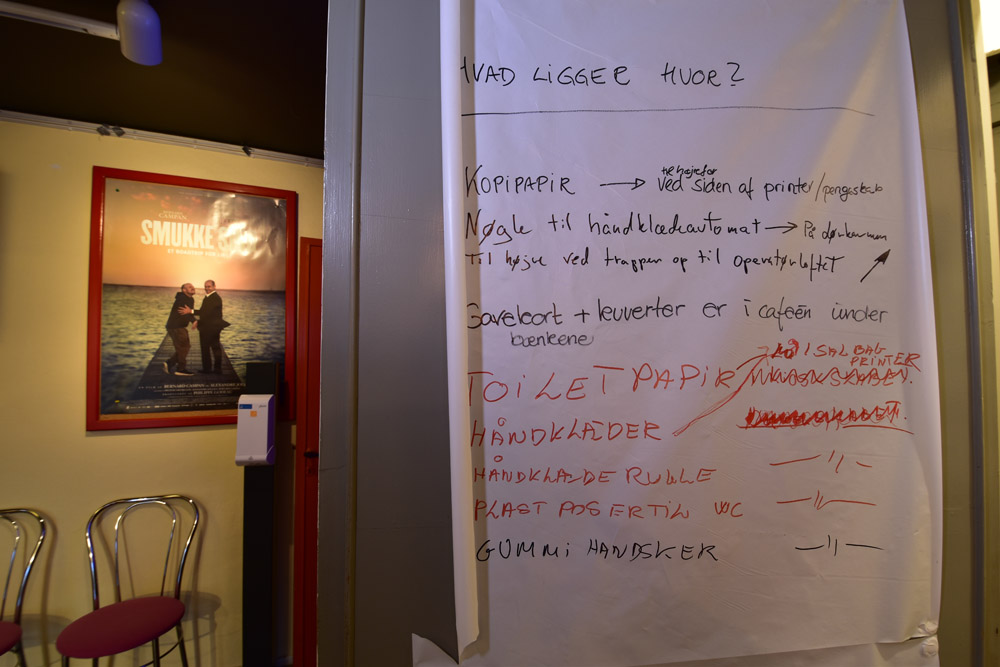 CAMPAN
SMUKKE
HVAD LIGGER HVOR?
KOPIPAPIR → til højre for ved siden af printer/pengeskab
Nøgle til håndklædeautomat → På dørkarmen
Til højre ved trappen op til operatørloftet
Gavekort + kuverter er i caféen under
bænkene
TOILETPAPIR I SAL BAG
PRINTER
HÅNDKLÆDER
HÅNDKLÆDE RULLE —〃—
PLAST POSER TIL WC —〃—
GUMMI HANDSKER —〃—